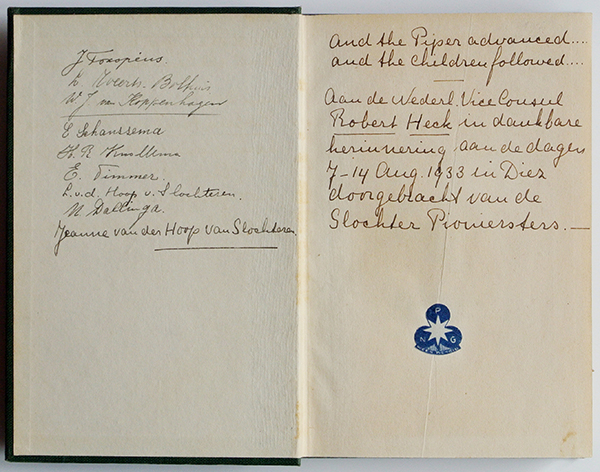 J Toxopéus.
Z. Weerts. Bolhuis
W J van Koppenhagen
E Schanssema
E. Timmer.
L.v.d. Hoop v. Slochteren.
N Dallinga.
Jeanne van der Hoop van Slochteren
And the Piper advanced....
and the Children followed....
Aan de Nederl. Vice Consul
Robert Heck in dankbare
herinnering aan de dagen
7-14 Aug. 1933 in Diez
doorgebracht van de
Slochter Pioniersters.—
P
N G